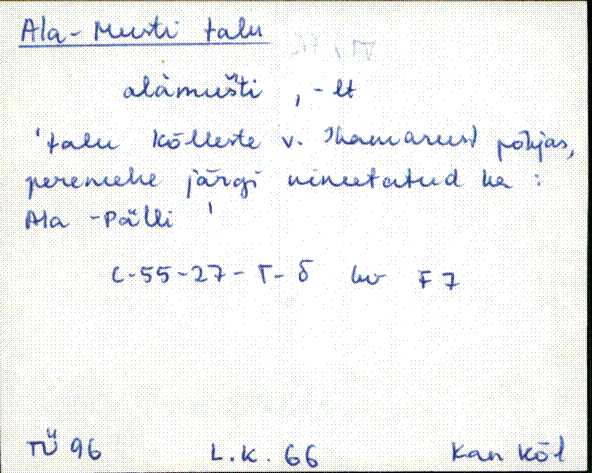 Ala-Musti talu
alàmušti, -lt
'talu Kõlleste v. Ihamarust põhjas,
peremehe järgi nimetatud ka:
Ala-Pälli'
C-55-27-Г-б kv F7
TÜ 96 L.K. 66 Kan Kõl